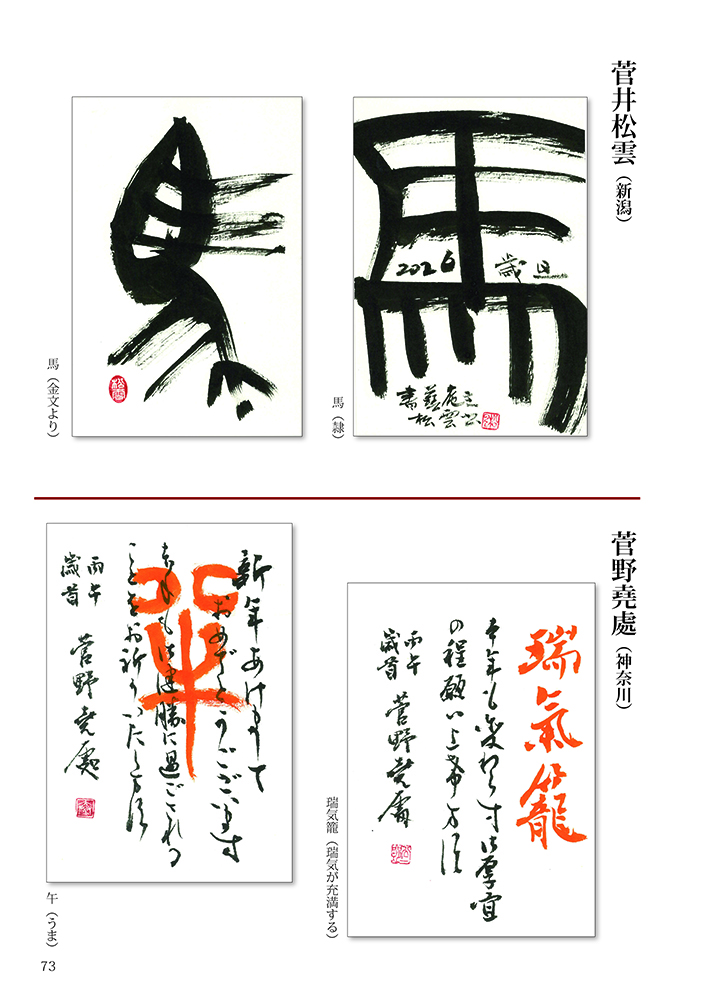 菅井松雲（新潟）
2026 歳旦
書藝處主公
松雲
馬（隷）
馬（金文より）
菅野堯處（神奈川）
瑞氣籠
本年も変わらず御厚宜
の程願い上希ます
丙午
歳首 菅野堯處
瑞気籠（瑞気が充満する）
新年あけまして
おめでとうございます
本年も御健勝に過ごされる
ことをお祈りいたします
丙午
歳首 菅野堯處
午（うま）
73